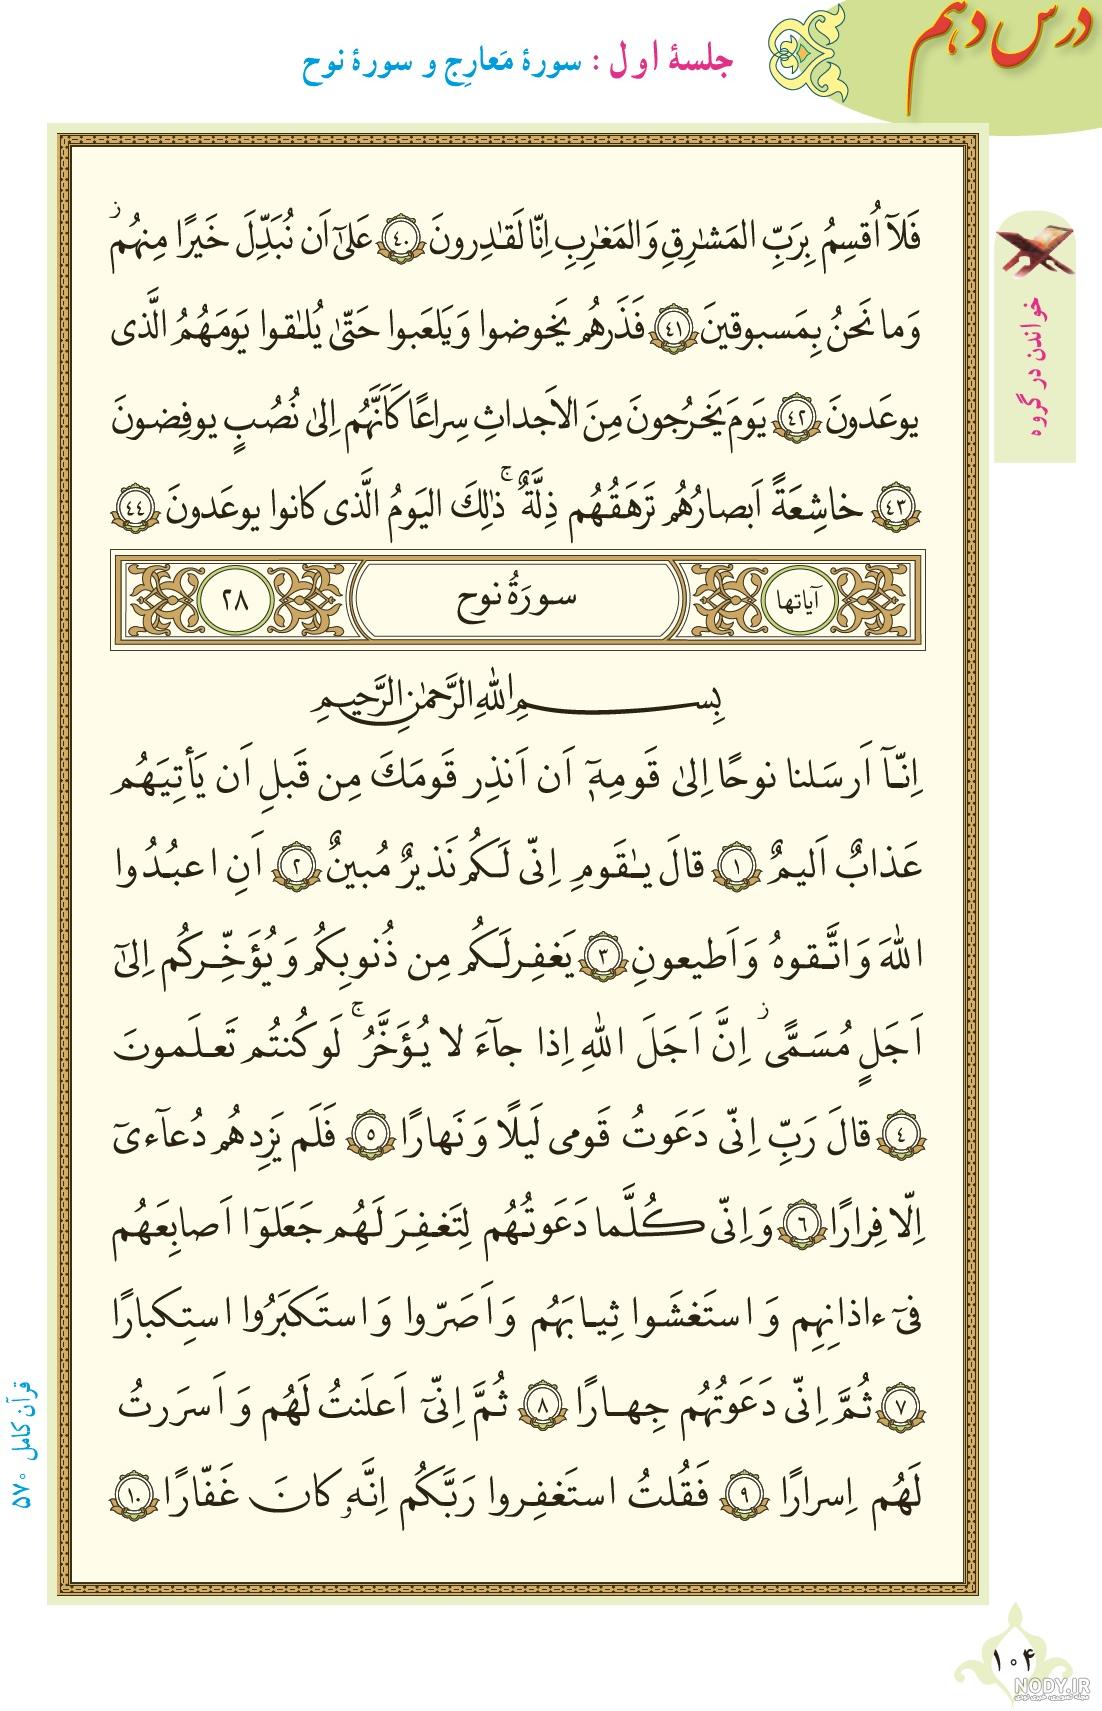 درس دهم
جلسهٔ اول : سورهٔ مَعارِج و سورهٔ نوح
خواندن در گروه
فَلَآ اُقسِمُ بِرَبِّ المَشـٰرِقِ وَ المَغـٰرِبِ اِنّا لَقـٰدِرونَ ﴿٤٠﴾ عَلىٰٓ اَن نُبَدِّلَ خَيرًا مِنهُم ز
وَ ما نَحنُ بِمَسبوقينَ ﴿٤١﴾ فَذَرهُم يَخوضوا وَ يَلعَبوا حَتّىٰ يُلـٰقوا يَومَهُمُ الَّذى
يوعَدونَ ﴿٤٢﴾ يَومَ يَخرُجونَ مِنَ الاَجداثِ سِراعًا كَاَنَّهُم اِلىٰ نُصُبٍ يوفِضونَ
﴿٤٣﴾ خاشِعَةً اَبصارُهُم تَرهَقُهُم ذِلَّةٌ ۚ ذٰلِكَ اليَومُ الَّذى كانوا يوعَدونَ ﴿٤٤﴾
آياتها سورَةُ نوح ٢٨
بِسمِ اللّٰهِ الرَّحمٰنِ الرَّحيمِ
اِنّآ اَرسَلنا نوحًا اِلىٰ قَومِهٖٓ اَن اَنذِر قَومَكَ مِن قَبلِ اَن يَأتِيَهُم
عَذابٌ اَليمٌ ﴿١﴾ قالَ يـٰقَومِ اِنّى لَكُم نَذيرٌ مُبينٌ ﴿٢﴾ اَنِ اعبُدُوا
اللّٰهَ وَ اتَّقوهُ وَ اَطيعونِ ﴿٣﴾ يَغفِرلَكُم مِن ذُنوبِكُم وَ يُؤَخِّركُم اِلىٰٓ
اَجَلٍ مُسَمًّى ز اِنَّ اَجَلَ اللّٰهِ اِذا جآءَ لا يُؤَخَّرُ ۚ لَو كُنتُم تَعلَمونَ
﴿٤﴾ قالَ رَبِّ اِنّى دَعَوتُ قَومى لَيلًا وَ نَهارًا ﴿٥﴾ فَلَم يَزِدهُم دُعآءىٓ
اِلّا فِرارًا ﴿٦﴾ وَ اِنّى كُلَّما دَعَوتُهُم لِتَغفِرَ لَهُم جَعَلوٓا اَصابِعَهُم
فىٓ ءاذانِهِم وَ استَغشَوا ثِيابَهُم وَ اَصَرّوا وَ استَكبَرُوا استِكبارًا
﴿٧﴾ ثُمَّ اِنّى دَعَوتُهُم جِهارًا ﴿٨﴾ ثُمَّ اِنّىٓ اَعلَنتُ لَهُم وَ اَسرَرتُ
لَهُم اِسرارًا ﴿٩﴾ فَقُلتُ استَغفِروا رَبَّكُم اِنَّهٗ كانَ غَفّارًا ﴿١٠﴾
قرآن کامل ۵۷۰
۱۰۴
NODY.IR